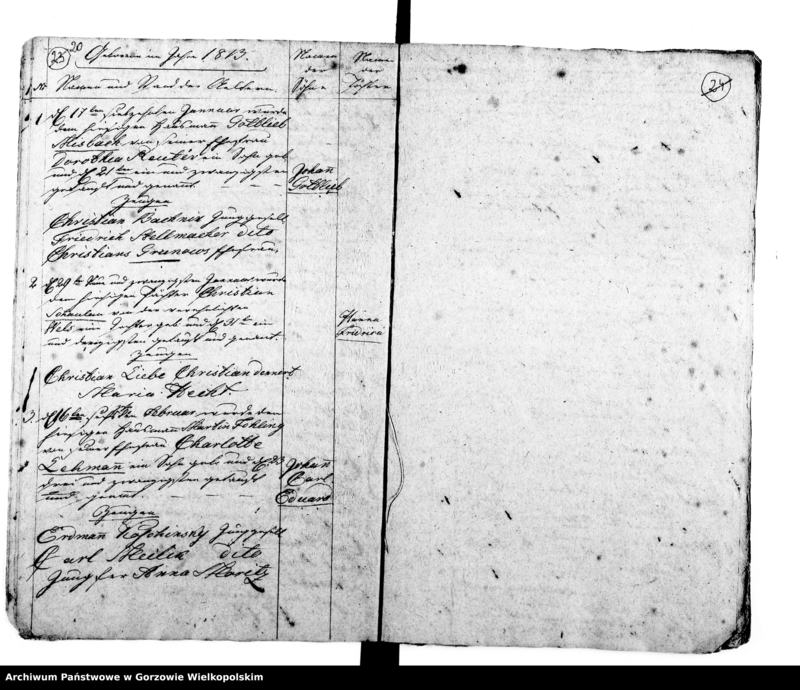 20
25
Geboren im Jahr 1813.
Namen der Söhne
Namen der Töchter
N Namen und Stand der Aeltern.
24
1 d 17ten siebzehnten Januar wurde
dem hiesigen Hausmann Gottlieb
Misbach von seiner Ehefrau
Dorothea Reuter ein Sohn geb.
und d 21ten ein und zwanzigsten
getauft und genant
Johañ
Gottlieb
Zeugen
Christian Bachnix Junggesell
Friedrich Stellmacher dito
Christiane Grunows Ehefrau
2 d 29te und zwanzigsten Januar wurde
dem hiesigen Christian
von der verehelichten
Wels eine Tochter geb. und d 31te ein
und dreizigsten getauft und genant.
Hanna
Zeugen
Christian Liebe Christian
Maria Hecht.
3. d 16ten Februar wurde dem
hiesigen Hausmann Martin Fehling
von seiner Ehefrau Charlotte
Lehmañ ein Sohn geb. und d 23
drei und zwanzigsten getauft
und genant.
Johañ
Carl
Eduard
Zeugen
Erdmañ Junggesell
Carl dito
Jungfer Anna Moritz
Archiwum Państwowe w Gorzowie Wielkopolskim